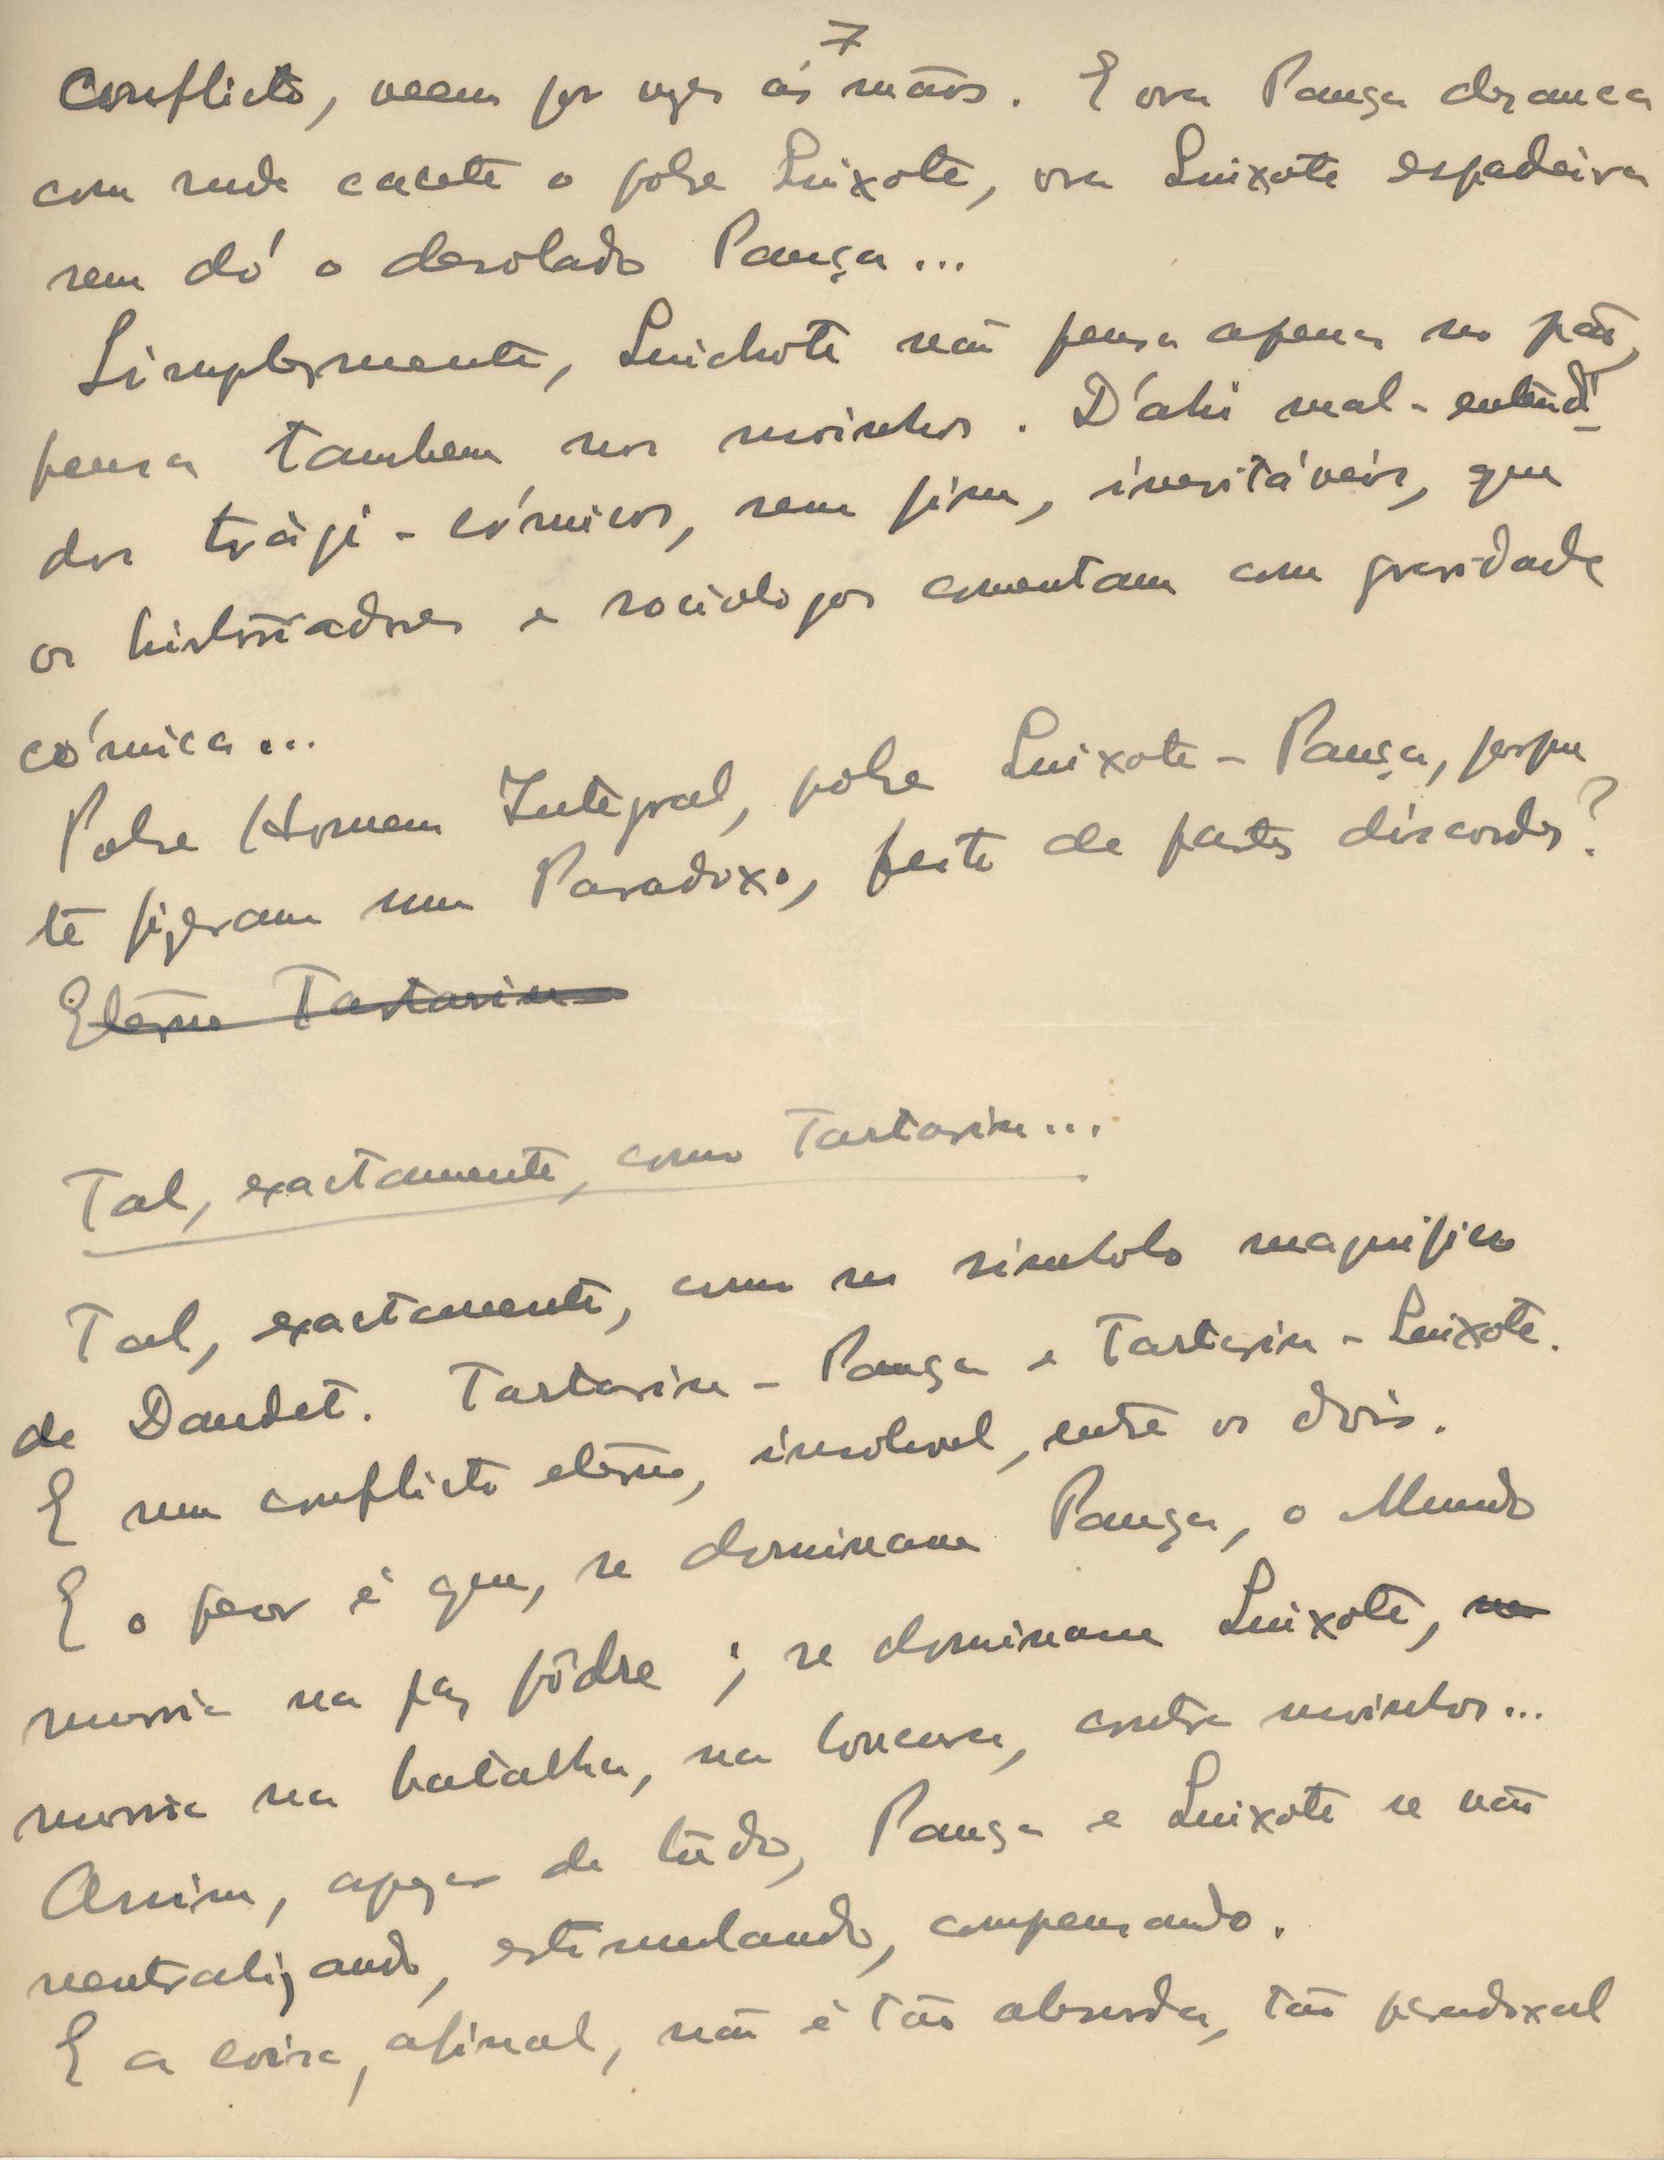 7
Conflicto, veem por vezes ás mãos. E ora Pança desanca
com rude cacete o pobre Quixote, ora Quixote espadeira
sem dó o desolado Pança...
Simplesmente, Quichote não pensa apenas no pão,
pensa tambem nos moinhos. D'ahi mal-entendi-
dos trági-cómicos, sem fim, inevitáveis, que
os historiadores e sociologos comentam com gravidade
cómica...
Pobre Homem Integral, pobre Quixote-Pança, porque
te fizeram um Paradoxo, feito de partes discordes?
Eterno Tartarin
Tal, exactamente, como Tartarin...
Tal, exactamente, como no simbolo magnifico
de Daudet. Tartarin-Pança e Tartarin-Quixote.
E um conflicto eterno, insoluvel, entre os dois.
E o peor é que, se dominam Pança, o Mundo
morria na paz pôdre; se dominam Quixote, no
morria na batalha, na loucura, contra moinhos...
Assim, apezar de tudo, Pança e Quixote se vão
neutralizando, estimulando, compensando.
E a coisa, afinal, não é tão absurda, tão paradoxal